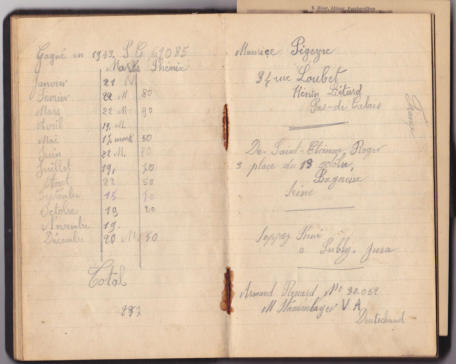 Gagné en 1943 S.G 69085
Marks Phenie
Janvier 21
Fevrier 22 M 80
Mars 22 M. 90
Avril 19 M.
Mai 17 mark 50
Juin 22 M. 70
Juillet 19, 70
Aout 22 50
Septembre 15 70
Octobre 19 20
Novembre 19.
Décembre 20 M 50
Total
237
Maurice Pigeyre
rue Loubet
Hénin Liétard
Pas-de Calais
De Saint-Etienne, Roger
3 place du 13 octobre,
Bagneux
Seine
René
à Jura
Armand Renard N° 32052
M Stammlager V A
Deutschland